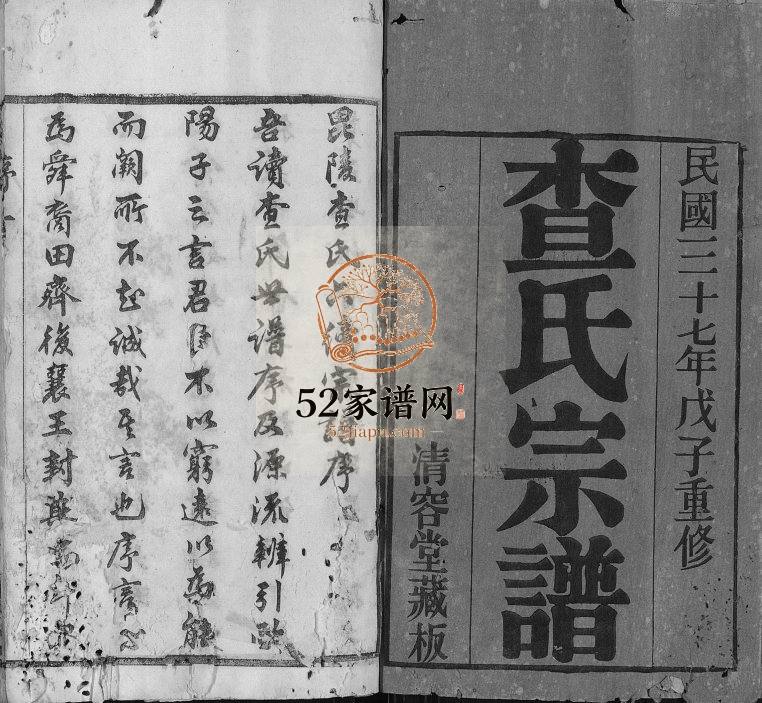 民國三十七年戊子重修
查氏宗譜
清容堂藏板
毘陵查氏宗譜序
吾讀查氏世譜序及源流辨引歐
陽子云言君子不以窮遠以為能
而闕所不知誠哉其言也序言
為舜裔田齊後襄王封
序
52家谱网
52jiapu.com